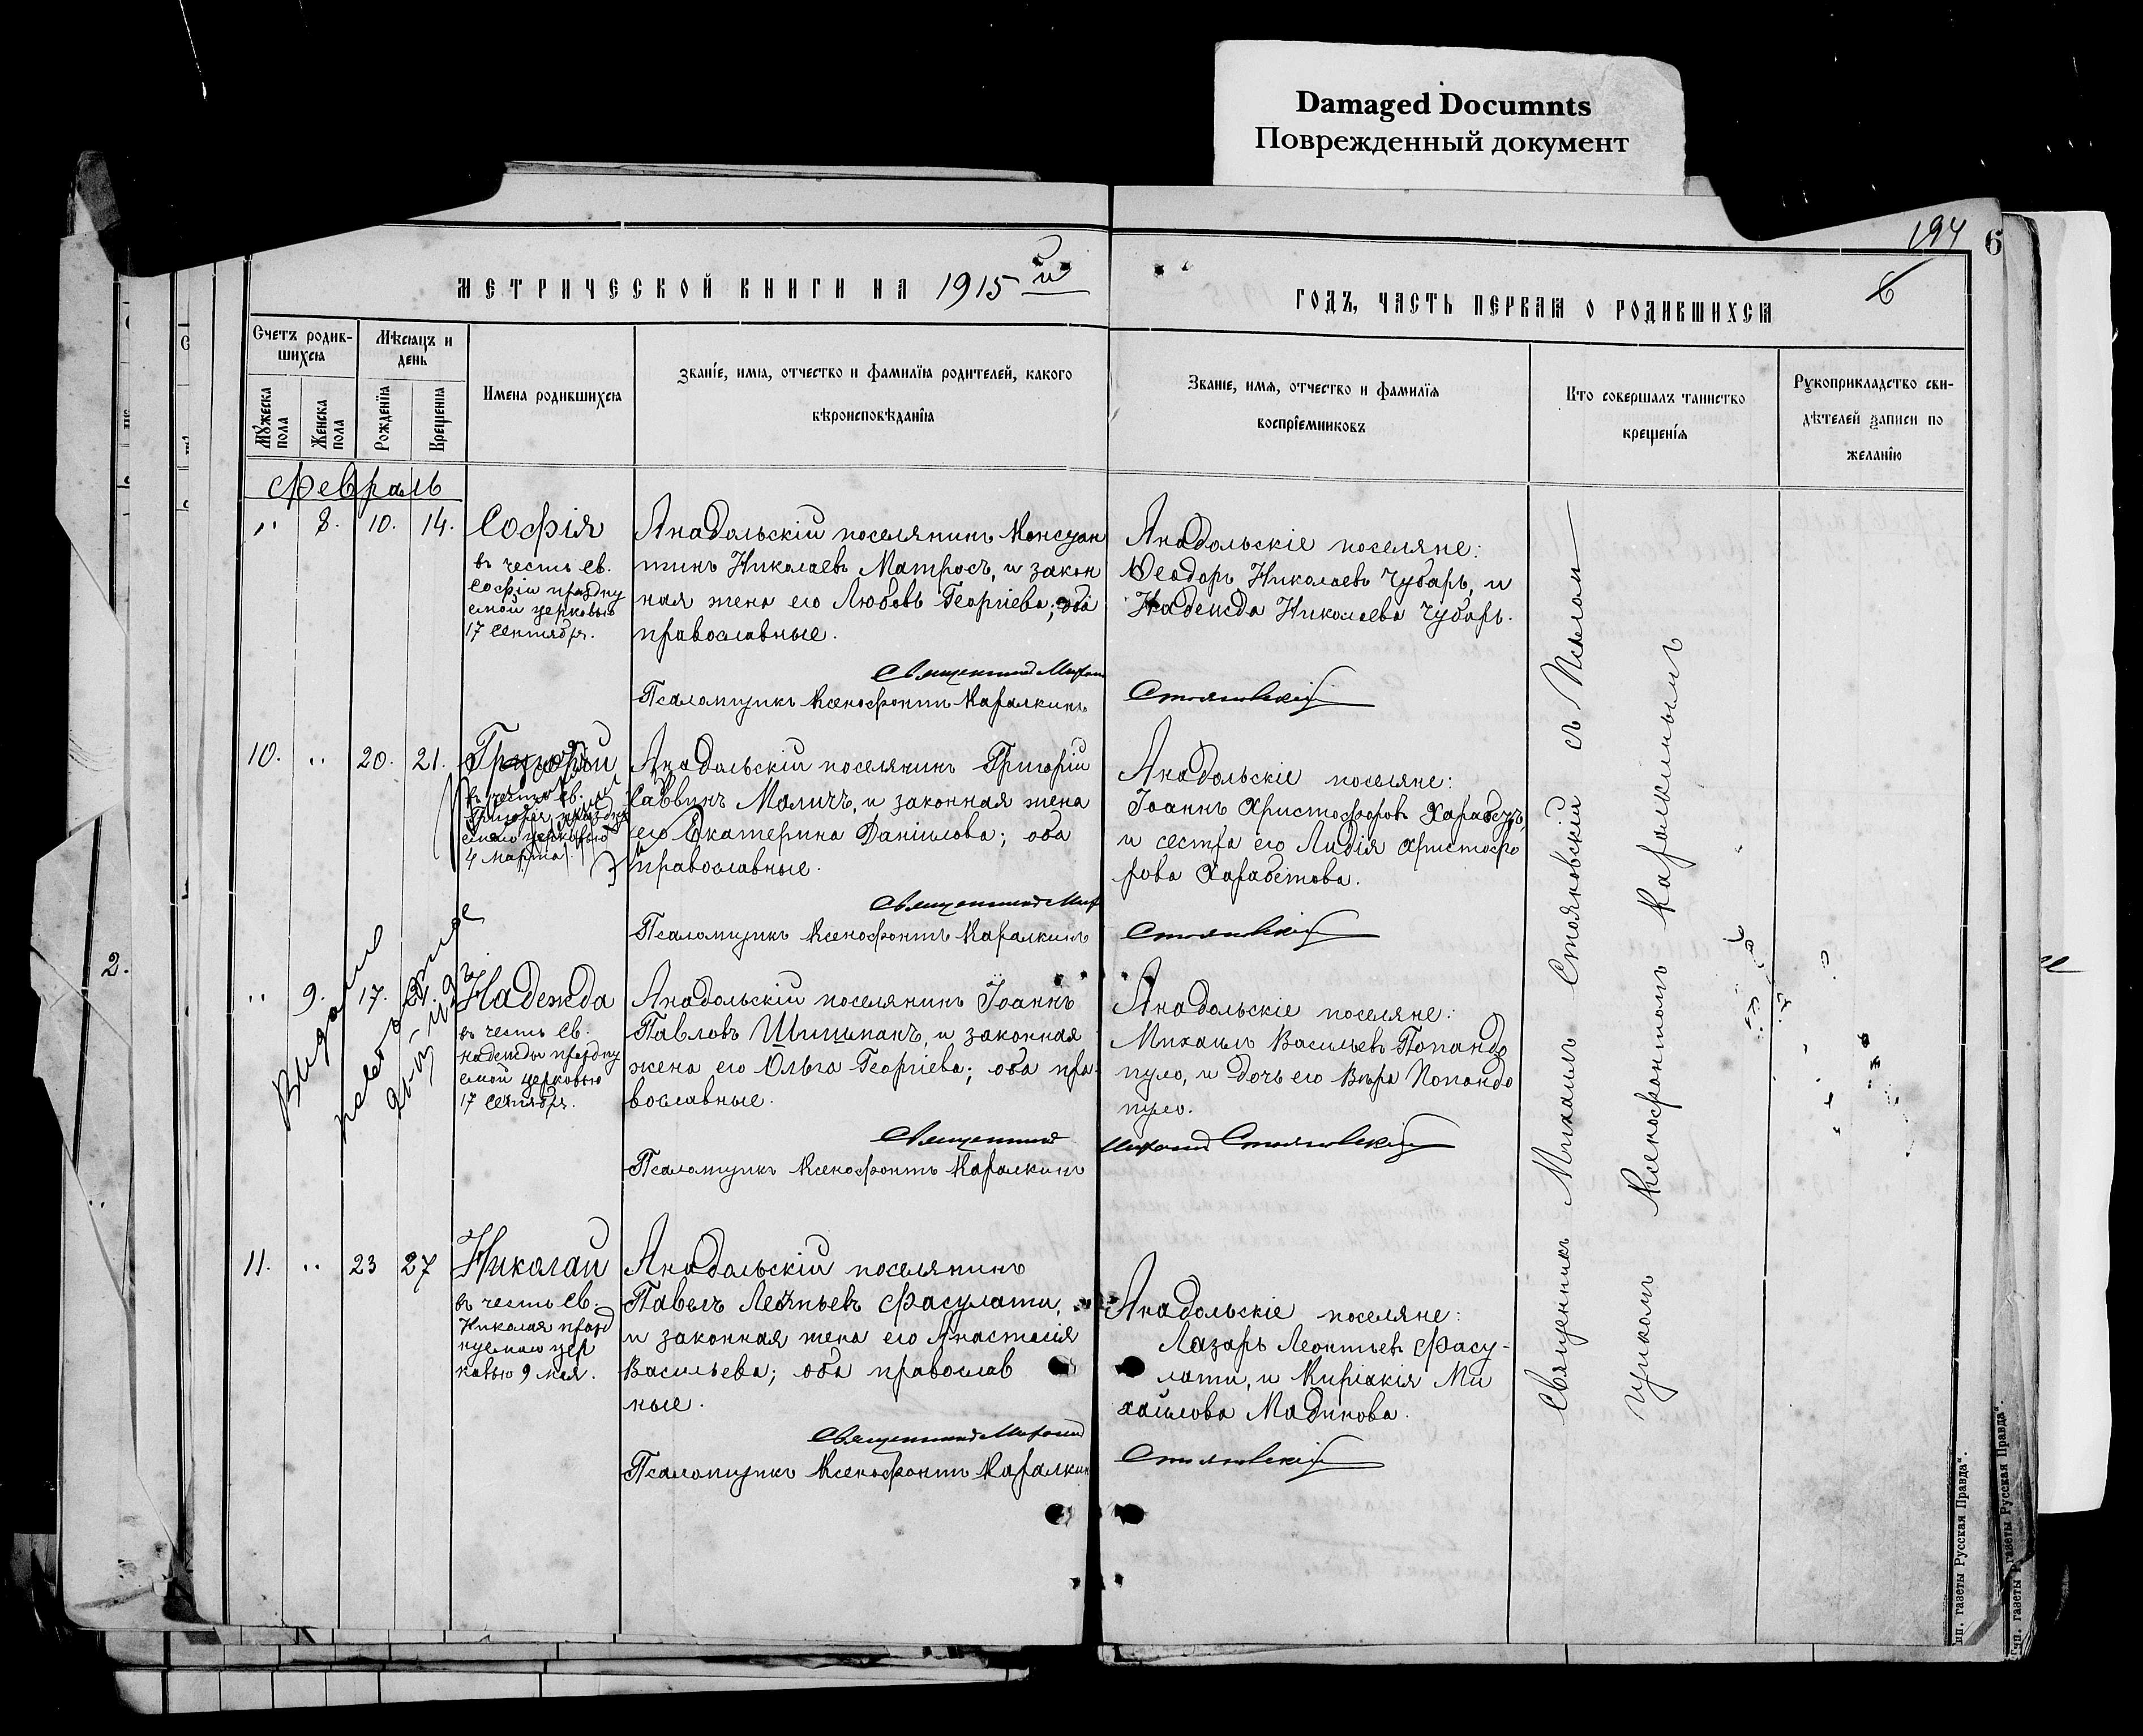 Damaged Documnts
Поврежденный документ
194
6
6
МЕТРИЧЕСКОЙ КНИГИ НА 1915 й
ГОДЪ, ЧАСТЬ ПЕРВАЯ О РОДИВШИХСЯ
Счетъ родив-
шихся
Мѣсяцъ и
день
Мужеска
пола
Женска
пола
Рожденія
Крещенія
Имена родившихся
Званіе, имя, отчество и фамилія родителей, какого
вѣроисповѣданія
Званіе, имя, отчество и фамилія
воспріемниковъ
Кто совершалъ таинство
крещенія
Рукоприкладство сви-
дѣтелей записи по
желанію
Февраль
" 8. 10. 14.
Софія
въ честь св.
Софіи празdну
емой церковью
17 Сентября.
Анадольскій поселянинъ Констан
тинъ Николаевъ Матросъ, и закон
ная жена его Любовь Георгіева; оба
православные.
Анадольскіе поселяне:
Ѳеодоръ Николаевъ Чубарь, и
Надежда Николаева Чубарь.
Священникъ Михаилъ
Стояновскій
Псаломщикъ Ксенофонтъ Каралкинъ
10. " 20. 21.
Григорій
въ честь св.
Григорія праздну
емаго церковью
4 марта.
Анадольскій поселянинъ Григорій
Саввинъ Маличъ, и законная жена
его Екатерина Даніилова; оба
православные.
Анадольскіе поселяне:
Іоаннъ Христофоровъ Харабетъ,
и сестра его Лидія Христофо
рова Харабетова.
Священникъ Мих
Стояновскій
Псаломщикъ Ксенофонтъ Каралкинъ
" 9. 17. 21.
Надежда
въ честь св.
надежды празdну
емой церковью
17 Сентября.
Анадольскій поселянинъ Іоаннъ
Павловъ Шишманъ, и законная
жена его Ольга Георгіева; оба пра-
вославные.
Анадольскіе поселяне:
Михаилъ Васильевъ Попандо
пуло, и дочь его Вѣра Попандо
пуло.
Священникъ
Михаилъ Стояновскій
Псаломщикъ Ксенофонтъ Каралкинъ
11. " 23 27
Николай
въ честь св.
Николая празd
нуемаго цер
ковью 9 мая.
Анадольскій поселянинъ
Павелъ Леонтьевъ Фасулати,
и законная жена его Анастасія
Васильева; оба православ
ные.
Анадольскіе поселяне:
Лазарь Леонтьевъ Фасу-
лати, и Киріакія Ми
хайлова Мадинова.
Священникъ Михаилъ
Стояновскій
Псаломщикъ Ксенофонтъ Каралкин
Священникъ Михаилъ Стояновскій съ Псалом-
щикомъ Ксенофонтомъ Каралкинымъ
2.
ип. газеты Русская Правда".
ип. газеты Русская Правда".